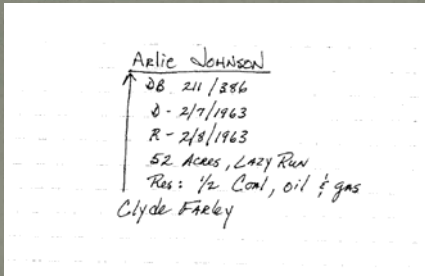 Arlie Johnson
DB 211/386
D - 2/7/1963
R - 2/8/1963
52 Acres, Lazy Run
Res: 1/2 Coal, oil & gas
Clyde Farley